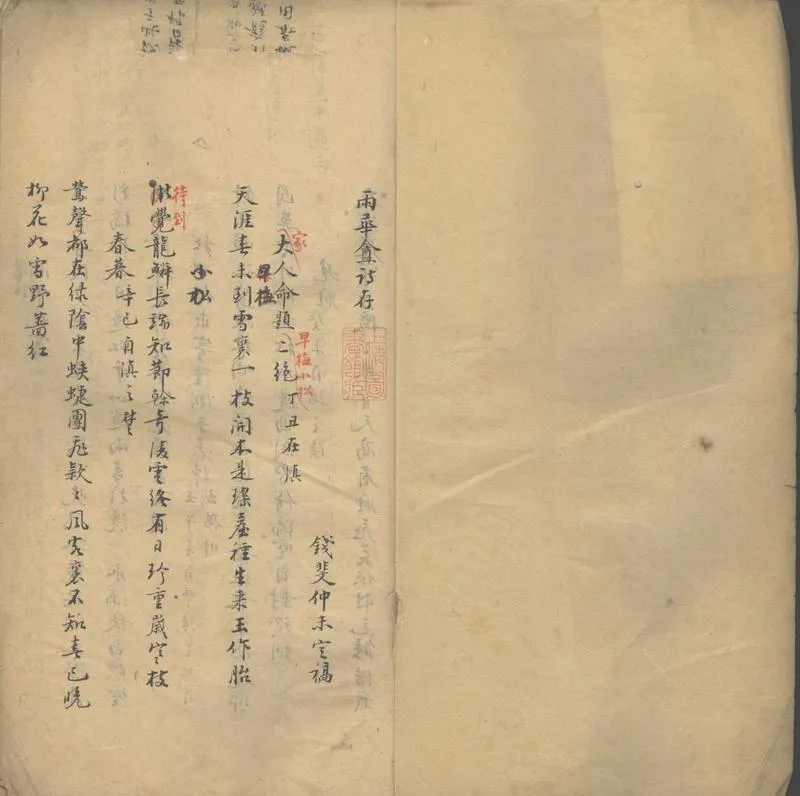 雨華盦詩存
錢斐仲未定稿
家大人命題早梅小松二絕 丁丑在滇
早梅
天涯春未到雪裏一枝開不是瑤臺種生來玉作胎
小松
待到
漸覺龍鱗長端知節幹奇凌雲終有日珍重歲寒枝
春暮 辛巳自滇之楚
鶯聲都在綠陰中蛺蜨團飛款款風客裏不知春已晚
柳花如雪野薔紅